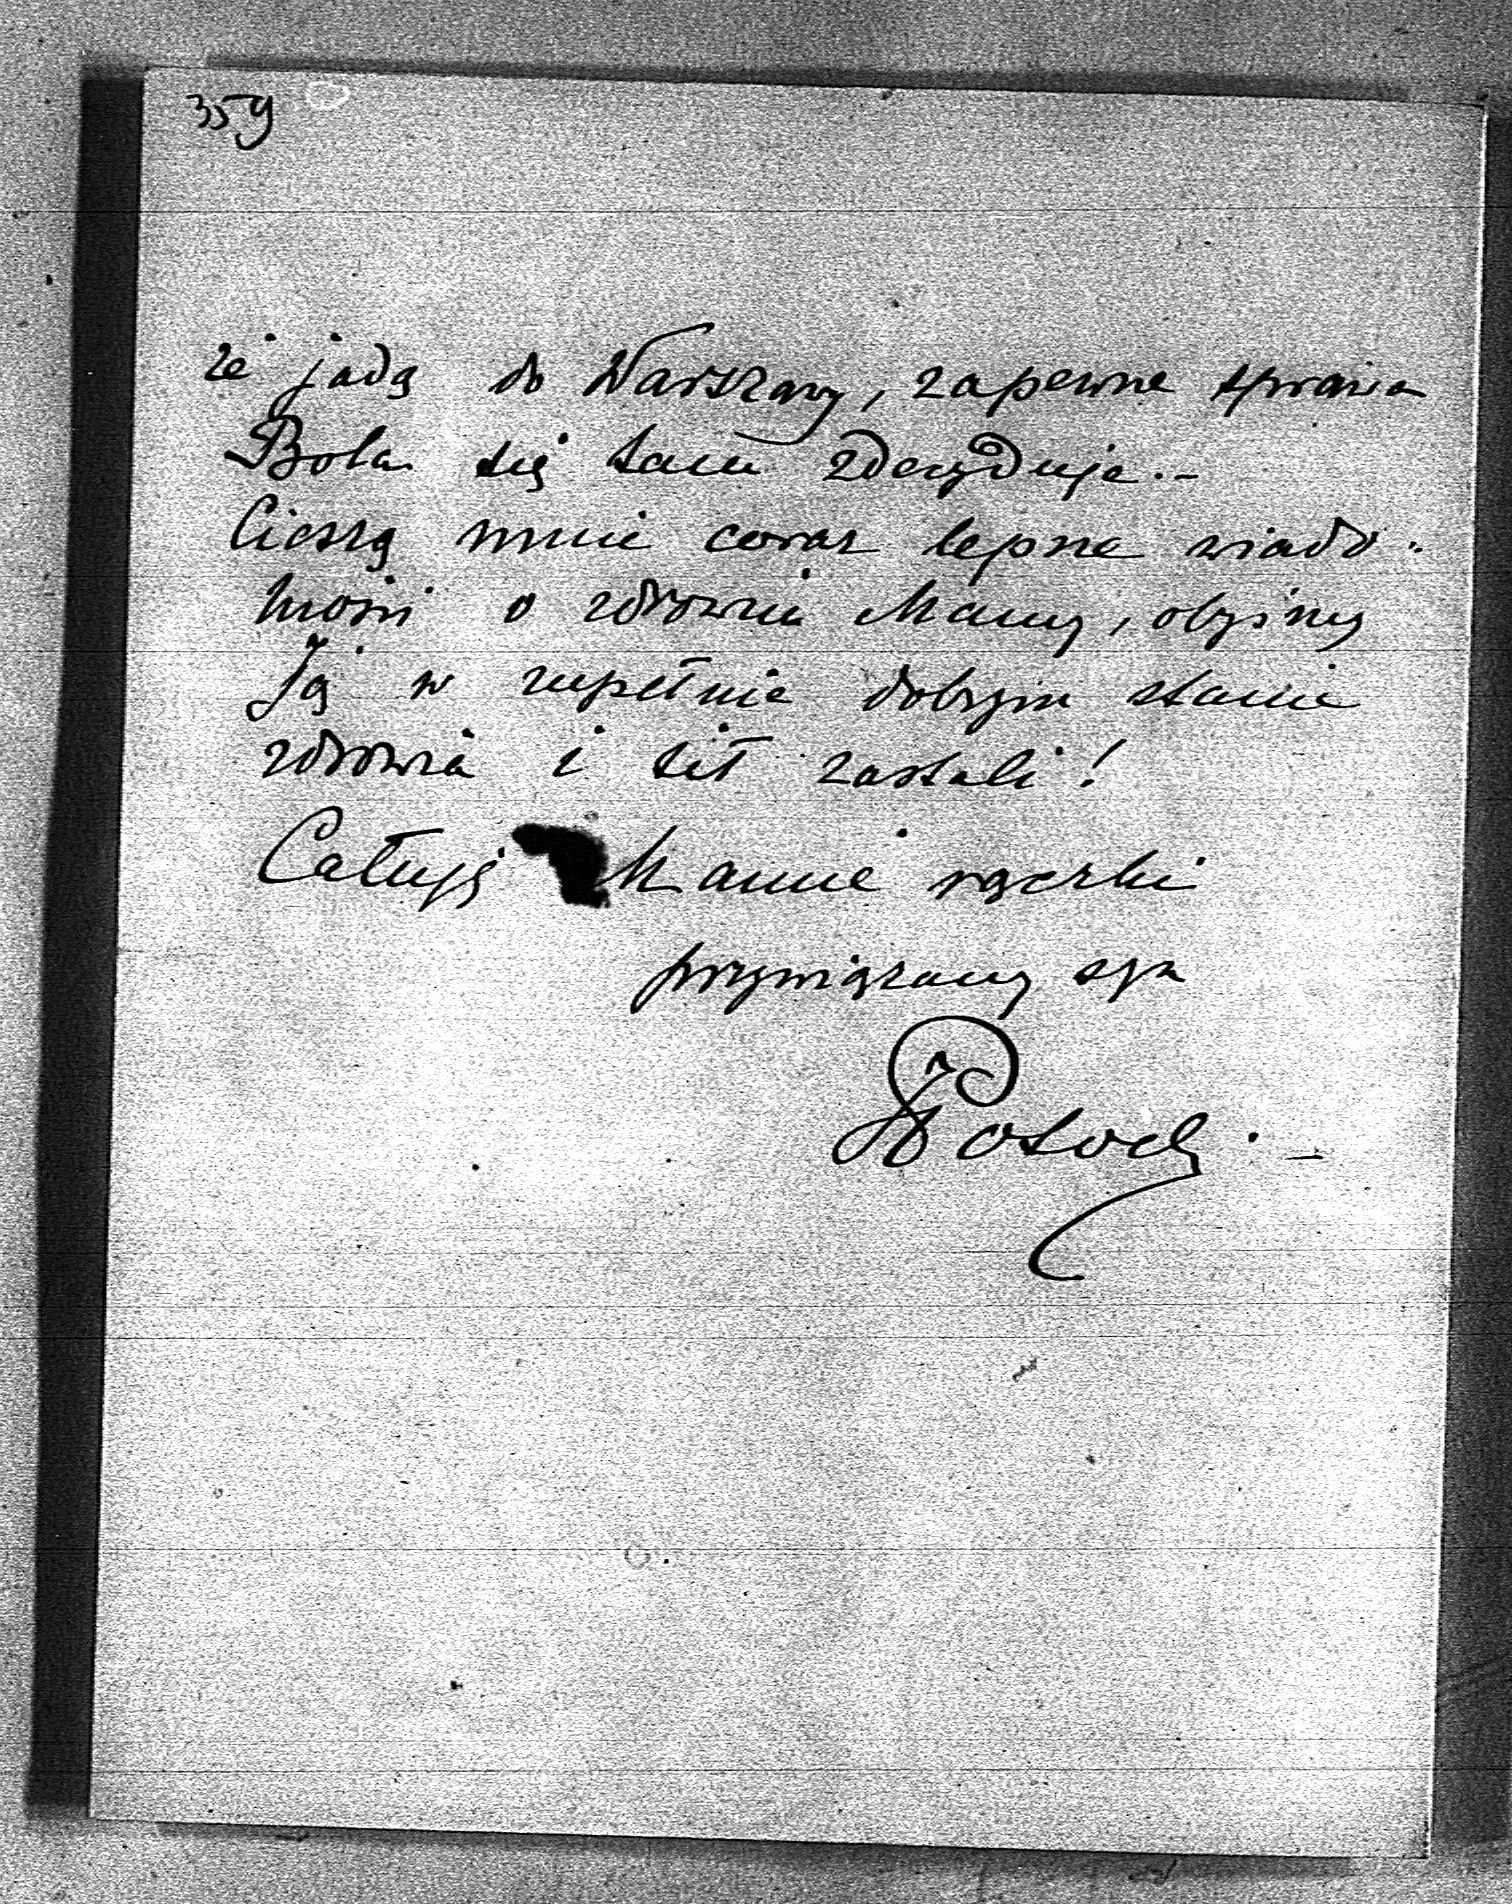 359
że jadą do Warszawy, zapewne sprawa
Bola się tam zdecyduje.-
Cieszą mnie coraz lepsze wiado-
mości o zdrowiu Mamy, obyśmy
Ją w zupełnie dobrym stanie
zdrowia i sił zastali!
Całuję Mamie rączki
przywiązany syn